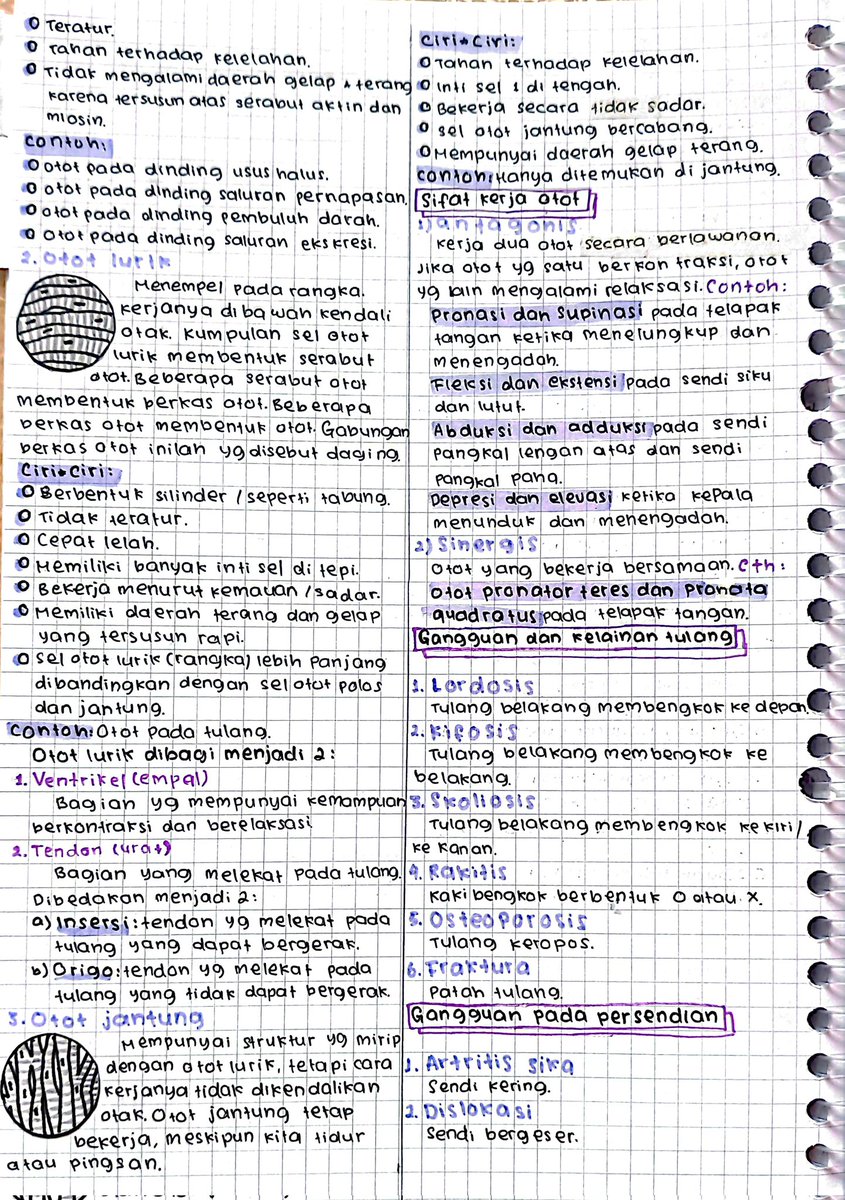 Teratur.
Tahan terhadap kelelahan.
Tidak mengalami daerah gelap + terang
karena tersusun atas serabut aktin dan
miosin.
Contoh:
Otot pada dinding usus halus.
Otot pada dinding saluran pernapasan.
Otot pada dinding pembuluh darah.
Otot pada dinding saluran ekskresi.
2. Otot lurik
Menempel pada rangka.
Kerjanya dibawah kendali
otak. Kumpulan sel otot
lurik membentuk serabut
otot. Beberapa serabut otot
membentuk berkas otot. Beberapa
berkas otot membentuk otot. Gabungan
berkas otot inilah yg disebut daging.
Ciri-Ciri:
Berbentuk silinder / seperti tabung.
Tidak teratur.
Cepat lelah.
Memiliki banyak inti sel di tepi.
Bekerja menurut kemauan / sadar.
Memiliki daerah terang dan gelap
yang tersusun rapi.
Sel otot lurik (rangka) lebih panjang
dibandingkan dengan sel otot polos
dan jantung.
Contoh: Otot pada tulang.
Otot lurik dibagi menjadi 2:
1. Ventrikel (empal)
Bagian yg mempunyai kemampuan
berkontraksi dan berelaksasi
2. Tendon (urat)
Bagian yang melekat pada tulang.
Dibedakan menjadi 2:
a) Insersi: tendon yg melekat pada
tulang yang dapat bergerak.
b) Origo: tendon yg melekat pada
tulang yang tidak dapat bergerak.
3. Otot jantung
Mempunyai struktur yg mirip
dengan otot lurik, tetapi cara
kerjanya tidak dikendalikan
otak. Otot jantung tetap
bekerja, meskipun kita tidur
atau pingsan.
Ciri-Ciri:
Tahan terhadap kelelahan.
Inti sel 1 di tengah.
Bekerja secara tidak sadar.
Sel otot jantung bercabang.
Mempunyai daerah gelap terang.
Contoh: Hanya ditemukan di jantung.
Sifat kerja otot
1) Antagonis
Kerja dua otot secara berlawanan.
Jika otot yg satu berkontraksi, otot
yg lain mengalami relaksasi. Contoh:
Pronasi dan Supinasi pada telapak
tangan ketika menelungkup dan
menengadah.
Fleksi dan ekstensi pada sendi siku
dan lutut.
Abduksi dan adduksi pada sendi
pangkal lengan atas dan sendi
pangkal paha.
Depresi dan elevasi ketika kepala
menunduk dan menengadah.
2) Sinergis
Otot yang bekerja bersamaan. Cth:
Otot pronator teres dan pronata
quadratus pada telapak tangan.
Gangguan dan kelainan tulang
1. Lordosis
Tulang belakang membengkok ke depan.
2. Kifosis
Tulang belakang membengkok ke
belakang.
3. Skoliosis
Tulang belakang membengkok ke kiri/
ke kanan.
4. Rakitis
Kaki bengkok berbentuk O atau X.
5. Osteoporosis
Tulang keropos.
6. Fraktura
Patah tulang.
Gangguan pada persendian
1. Artritis sika
Sendi kering.
2. Dislokasi
Sendi bergeser.